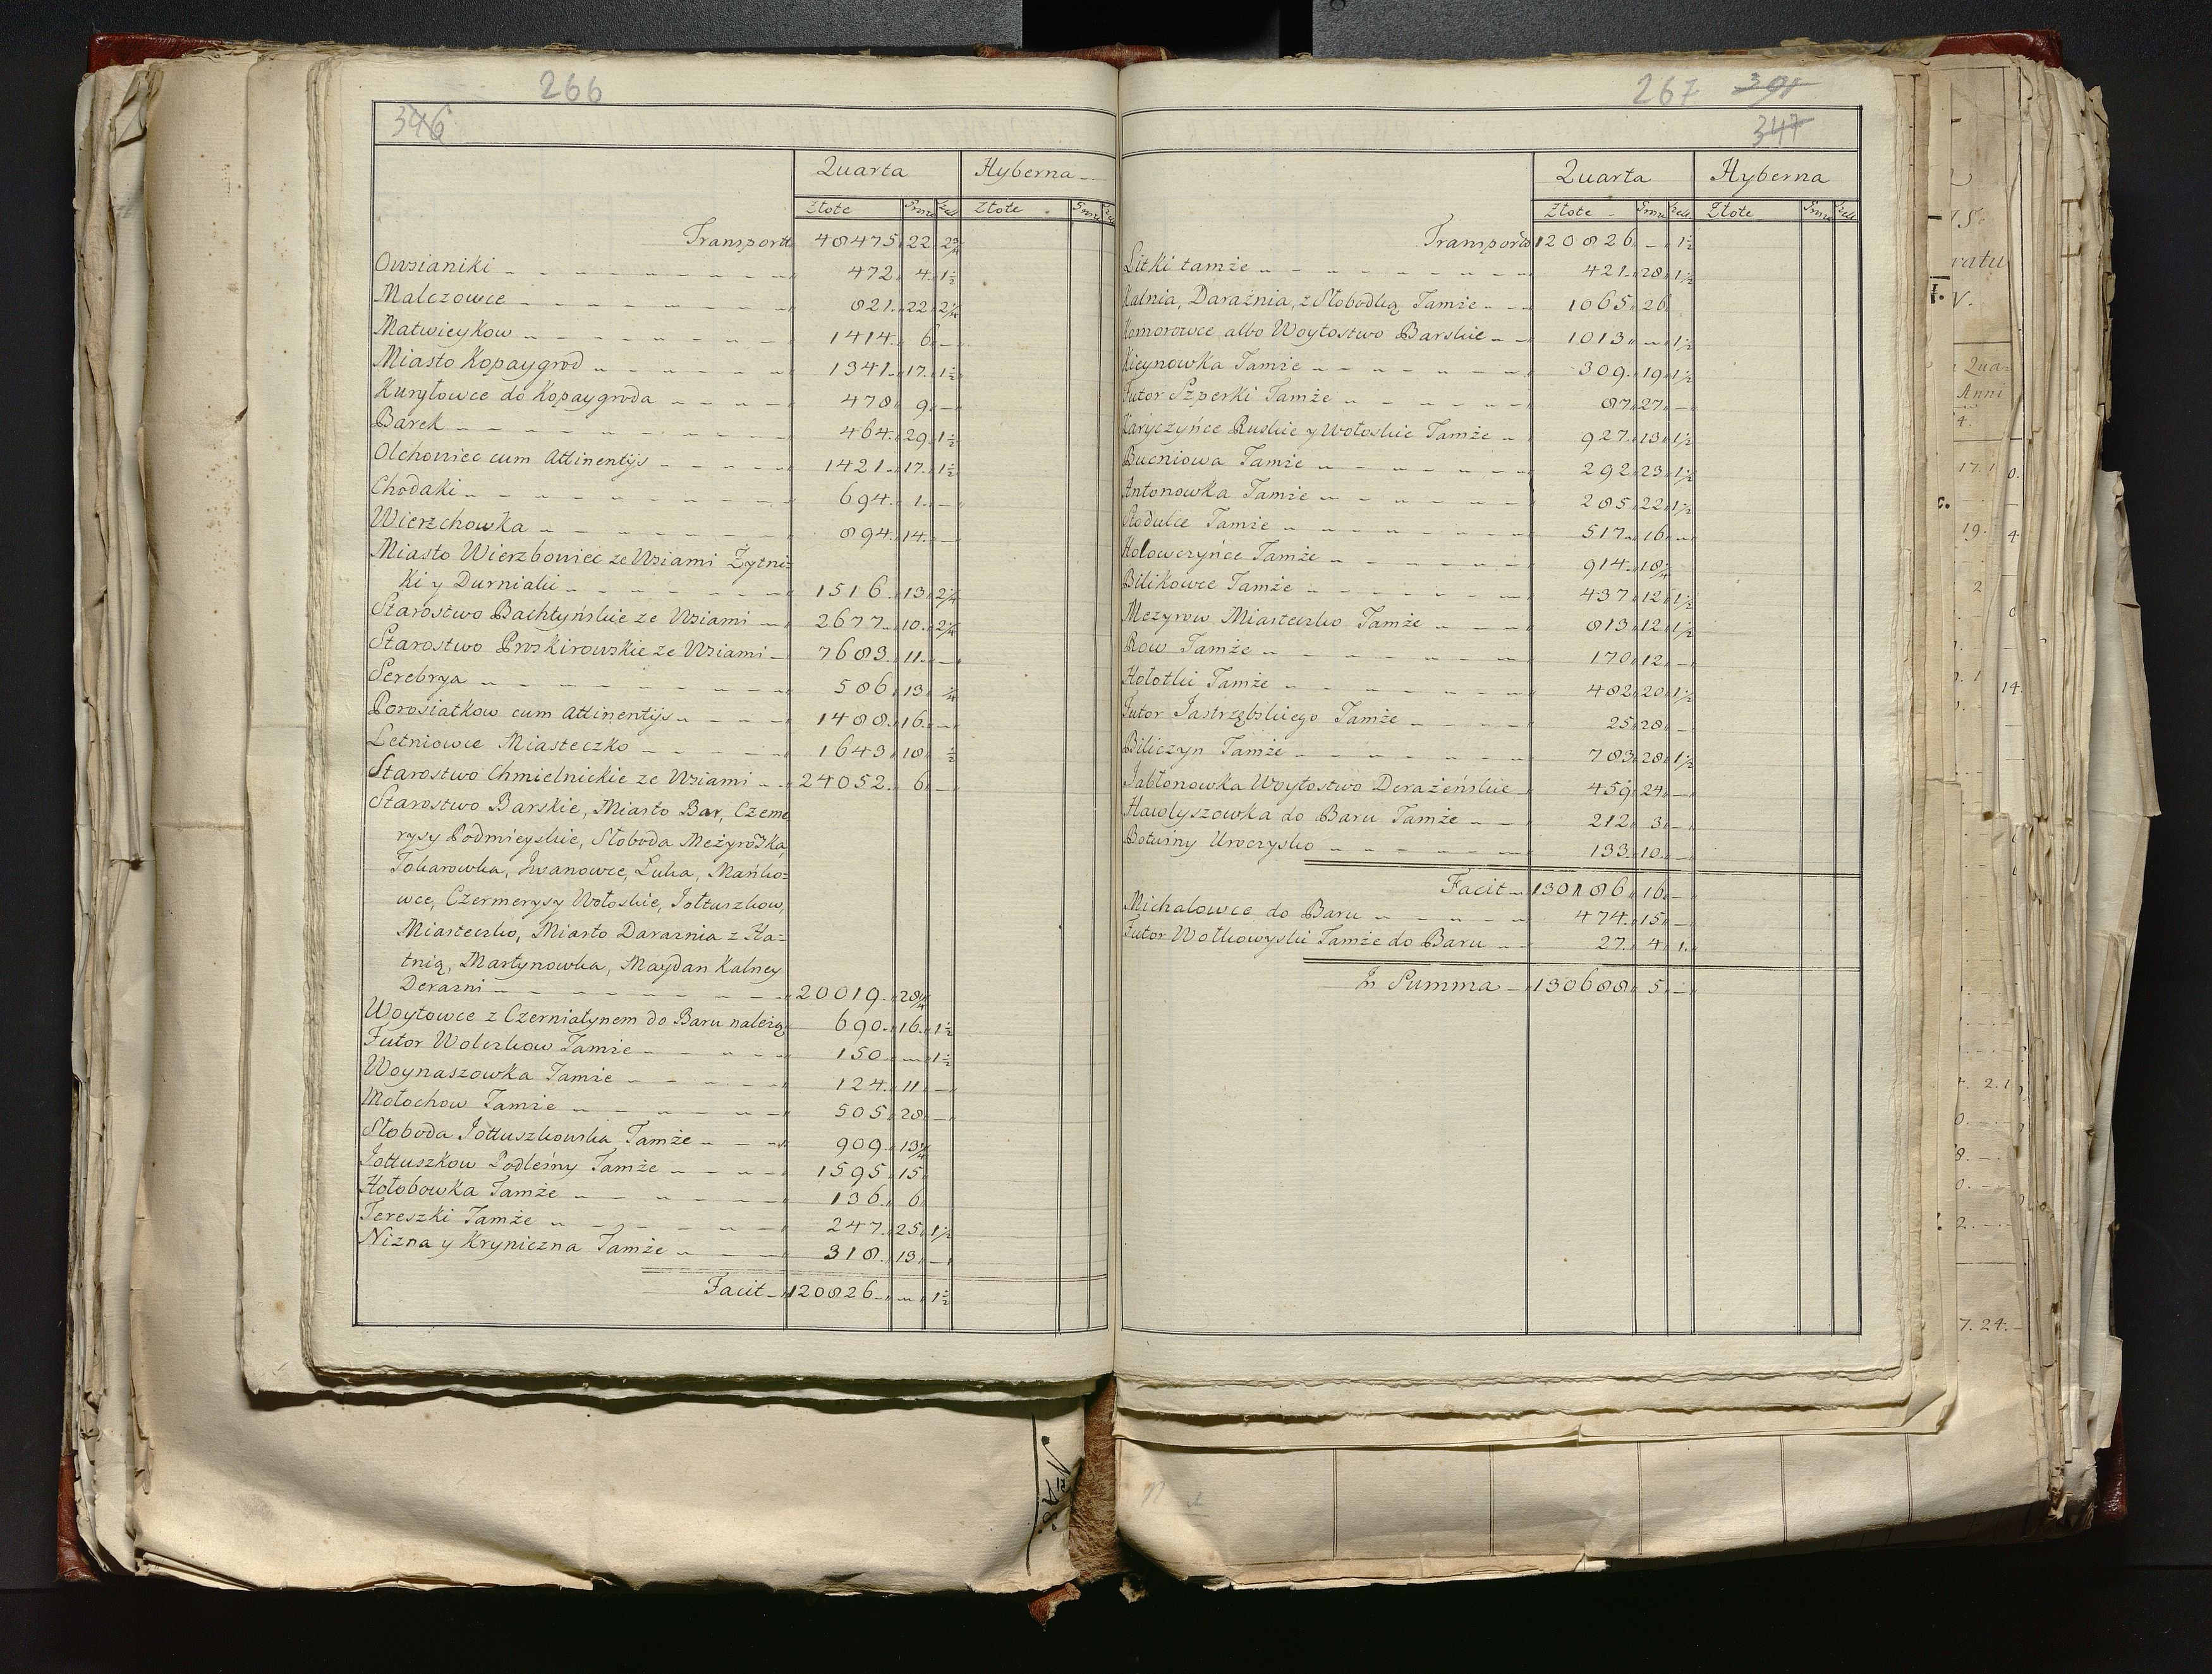 266
346
Quarta Hyberna
Złote Grosze Szel Złote Grosze Szel
Transport 48475 22 2¾
Owsianiki 472 4 1½
Malczowce 821 22 2¼
Matwieykow 1414 6 —
Miasto Kopaygrod 1341 17 1½
Kuryłowce do Kopaygroda 478 9 —
Barek 464 29 1½
Olchowiec cum Attinentijs 1421 17 1½
Chodaki 694 1 —
Wierzchowka 894 14 —
Miasto Wierzbowiec ze Wsiami Żytni=
ki y Durniaki 1516 13 2¼
Starostwo Bachtyńskie ze Wsiami 2677 10 2¼
Starostwo Proskirowskie ze Wsiami 7683 11 —
Serebrya 586 13 ¾
Porosiatkow cum Attinentijs 1488 16 —
Letniowce Miasteczko 1643 18 ½
Starostwo Chmielnickie ze Wsiami 24052 6 —
Starostwo Barskie, Miasto Bar, Czeme
rysy Podmieyskie, Słoboda Meżyrowska,
Tokarowka, Iwanowce, Łuka, Mańko=
wce, Czermerysy Wołoskie, Jołtuszkow,
Miasteczko, Miasto Darasnia z Ka=
tnią, Martynowka, Maydan Kalney
Derazni 20019 28¼
Woytowce z Czerniatynem do Baru należą 690 16 1½
Futor Wolczkow Tamże 150 — 1½
Woynaszowka Tamże 124 11 —
Mołochow Tamże 505 28 —
Słoboda Jołtuszkowska Tamże 909 13¼
Jołtuszkow Podleśny Tamże 1595 15
Hołobowka Tamże 136 6
Tereszki Tamże 247 25 1½
Nizna y Kryniczna Tamże 318 13 —
Facit 120826 — 1½
267
347
Quarta Hyberna
Złote Grosze Szel Złote Grosze Szel
Transport 120826 — 1½
Litki tamże 421 28 1½
Kalnia, Daraźnia, z Słobodką Tamże 1065 26
Komorowce albo Woytostwo Barskie 1013 — 1½
Kieynowka Tamże 309 19 1½
Futor Szperki Tamże 87 27 —
Karyczyńce Ruskie y Wołoskie Tamże 927 13 1½
Bucniowa Tamże 292 23 1½
Antonowka Tamże 285 22 1½
Stodulce Tamże 517 16 —
Holowczyńce Tamże 914 18¾
Bilikowce Tamże 437 12 1½
Mezyrow Miasteczko Tamże 813 12 1½
Row Tamże 170 12 —
Hołotki Tamże 482 20 1½
Futor Jastrzębskiego Tamże 25 28 —
Biliczyn Tamże 783 28 1½
Jabłonowka Woytostwo Derażeńskie 459 24 —
Hawłyszowka do Baru Tamże 212 3 —
Botuśny Uroczysko 133 10 —
Facit 130186 16 —
Michałowce do Baru 474 15 —
Futor Wołkowyski Tamże do Baru 27 4 1
In Summa 130688 5 —